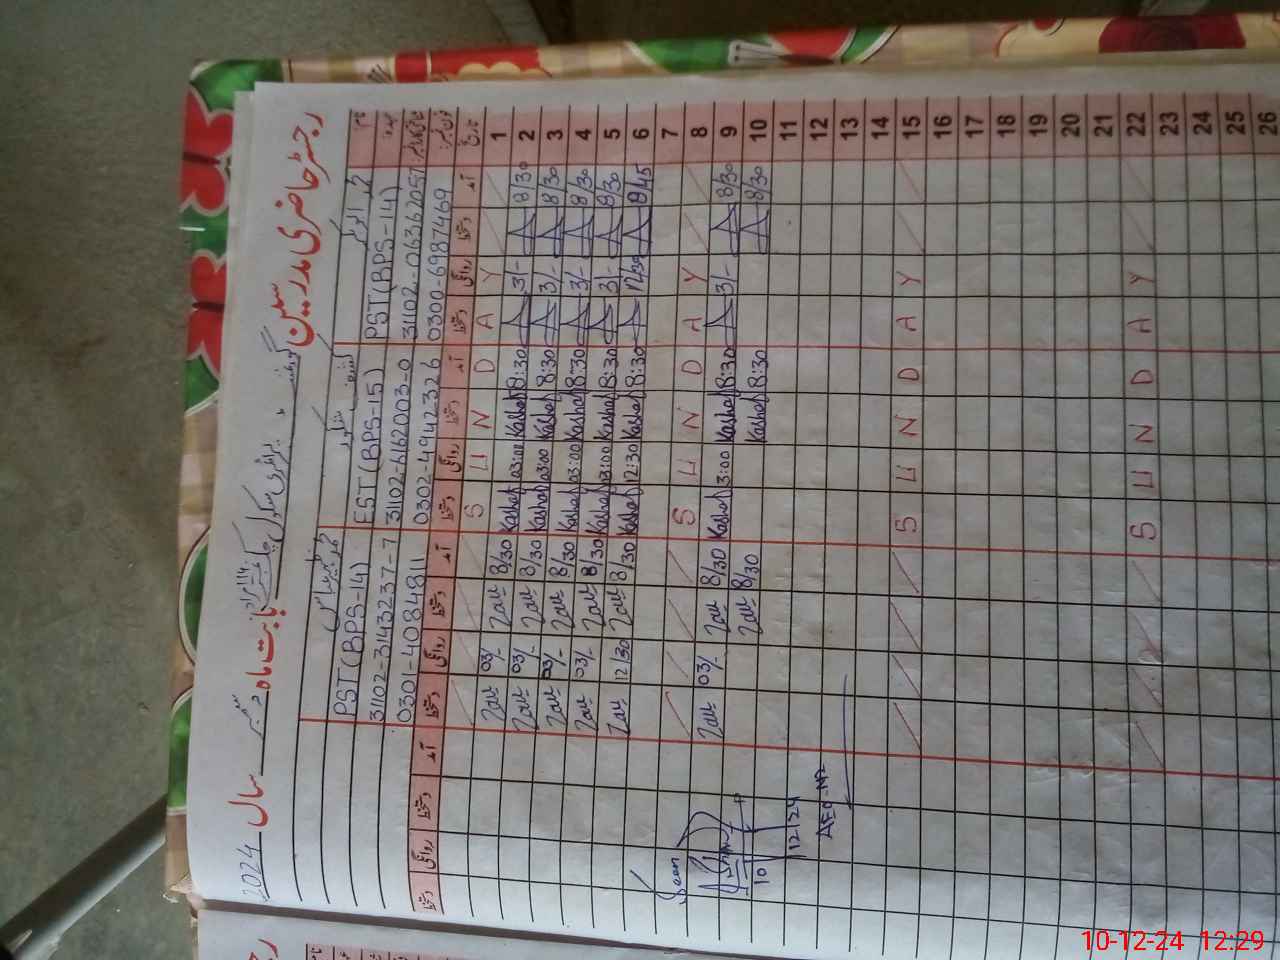 رجسٹر حاضری مدرسین گورنمنٹ پرائمری سکول
بابت ماہ دسمبر سال 2024
نام
عہدہ
PST (BPS-14) EST (BPS-15) PST (BPS-14)
31102-0636205 31102-6162003-0 31102-3143237-7
0300-6987469 0302-4942326 0301-4084811
تاریخ آمد دستخط روانگی دستخط آمد دستخط روانگی دستخط آمد دستخط روانگی دستخط آمد دستخط روانگی دستخط
1 S U N D A Y
2 8/30 3/- 8:30 Kashaf 03:00 Kashaf 8/30 03/-
3 8/30 3/- 8:30 Kashaf 03:00 Kashaf 8/30 03/-
4 8/30 3/- 8:30 Kashaf 03:00 Kashaf 8/30 03/-
5 8/30 3/- 8:30 Kashaf 03:00 Kashaf 8/30 03/-
6 8/45 12/30 8:30 Kashaf 12:30 Kashaf 8/30 12/30
7
8 S U N D A Y
9 8/30 3/- 8:30 Kashaf 3:00 Kashaf 8/30 03/-
10 8/30 8:30 Kashaf 8/30
11
12
13
14
15 S U N D A Y
16
17
18
19
20
21
22 S U N D A Y
23
24
25
26
Seen
10/12/24
10-12-24 12:29